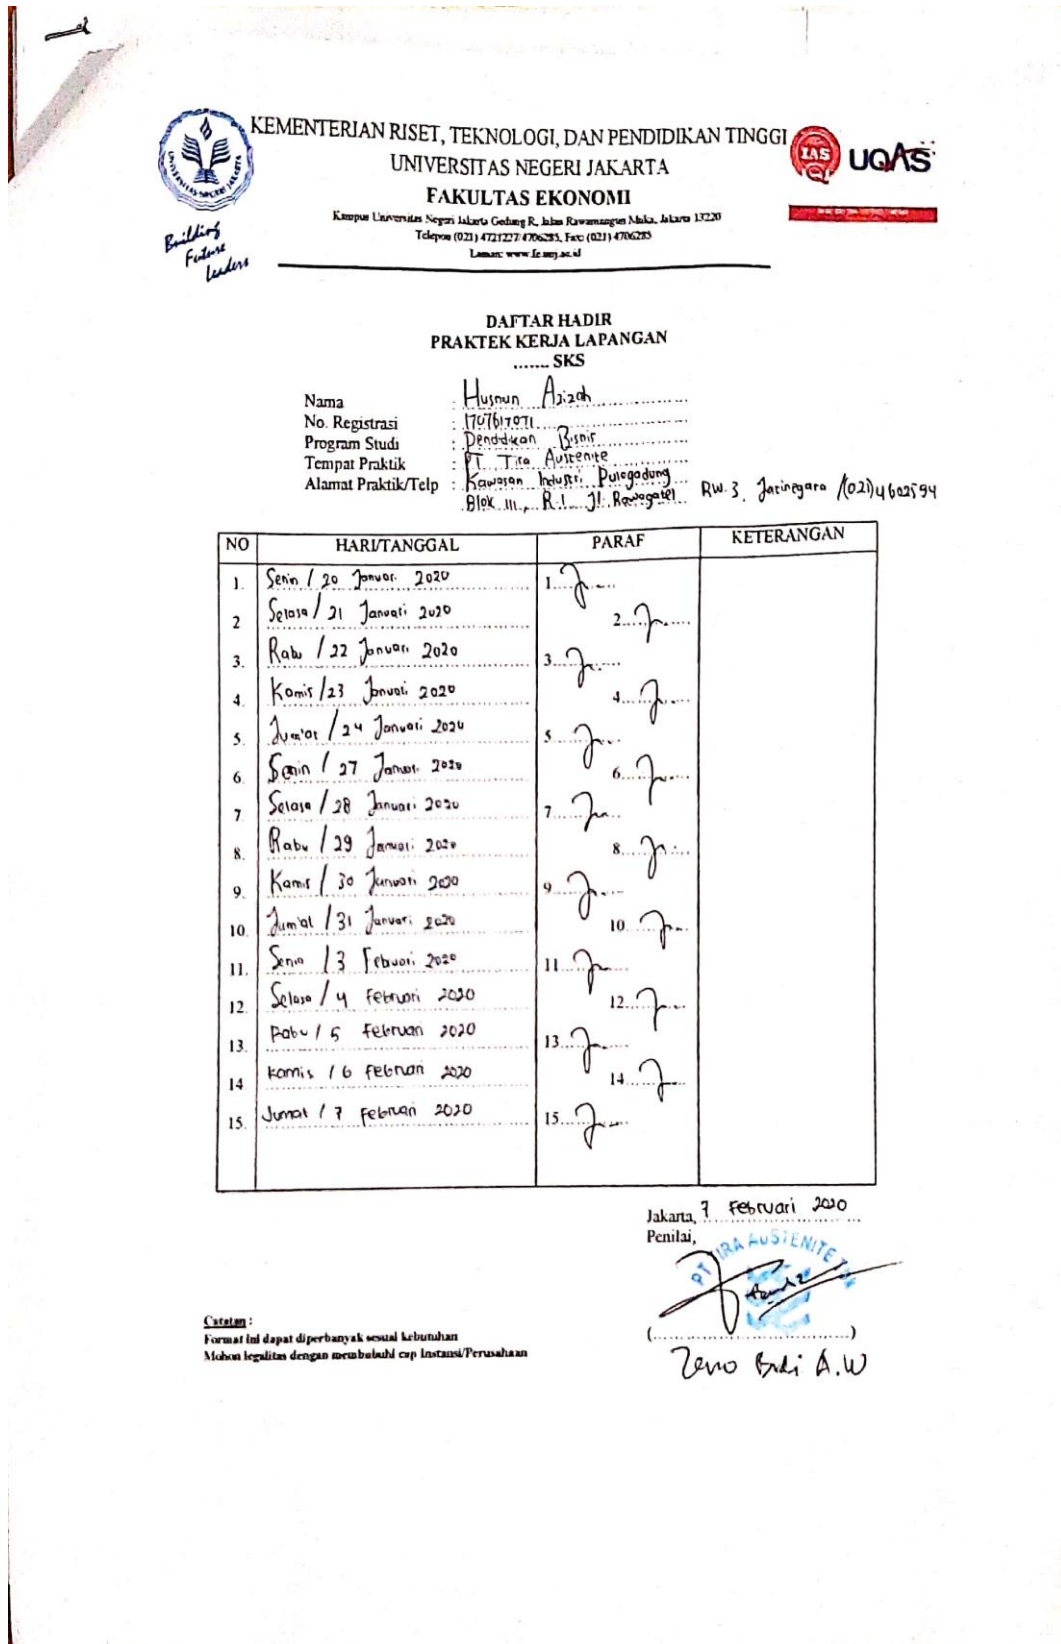 KEMENTERIAN RISET, TEKNOLOGI, DAN PENDIDIKAN TINGGI
UNIVERSITAS NEGERI JAKARTA
FAKULTAS EKONOMI
Kampus Universitas Negeri Jakarta Gedung R, Jalan Rawamangun Muka, Jakarta 13220
Telepon (021) 4721227/4706285, Fax: (021) 4706285
Laman: www.fe.unj.ac.id
UNIVERSITAS NEGERI JAKARTA
Building
Future
Leaders
IAS
UQAS
DAFTAR HADIR
PRAKTEK KERJA LAPANGAN
....... SKS
Nama : Husnun Azizah
No. Registrasi : 1707617071
Program Studi : Pendidikan Bisnis
Tempat Praktik : PT. Tira Austenite
Alamat Praktik/Telp : Kawasan Industri Pulogadung
Blok III, R.1. Jl. Rawagatel RW. 3, Jatinegara /(021)4602594
NO HARI/TANGGAL PARAF KETERANGAN
1. Senin / 20 Januari 2020 1.
2 Selasa / 21 Januari 2020 2.
3. Rabu / 22 Januari 2020 3.
4. Kamis / 23 Januari 2020 4.
5. Jum'at / 24 Januari 2020 5.
6. Senin / 27 Januari 2020 6.
7. Selasa / 28 Januari 2020 7.
8. Rabu / 29 Januari 2020 8.
9. Kamis / 30 Januari 2020 9.
10. Jum'at / 31 Januari 2020 10.
11. Senin / 3 Febuari 2020 11.
12. Selasa / 4 Februari 2020 12.
13. Rabu / 5 Februari 2020 13.
14 Kamis / 6 Februari 2020 14.
15. Jumat / 7 Februari 2020 15.
Jakarta, 7 Februari 2020
Penilai,
PT TIRA AUSTENITE Tbk
(..................................)
Catatan :
Format ini dapat diperbanyak sesuai kebutuhan
Mohon legalitas dengan membubuhi cap Instansi/Perusahaan
Zeno Budi A.W